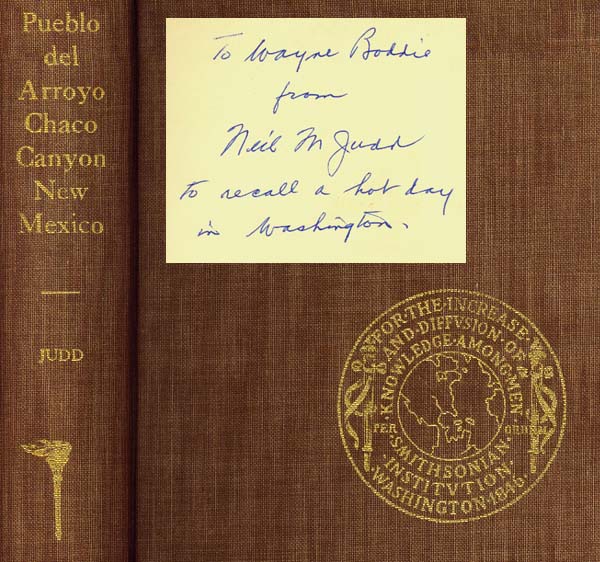 Pueblo
del
Arroyo
Chaco
Canyon
New
Mexico
JUDD
To Wayne Boddie
from
Neil M Judd
To recall a hot day
in Washington.
FOR·THE·INCREASE
AND·DIFFVSION·OF
KNOWLEDGE·AMONG·MEN
PER ORBEM
SMITHSONIAN
INSTITVTION·
WASHINGTON·1846